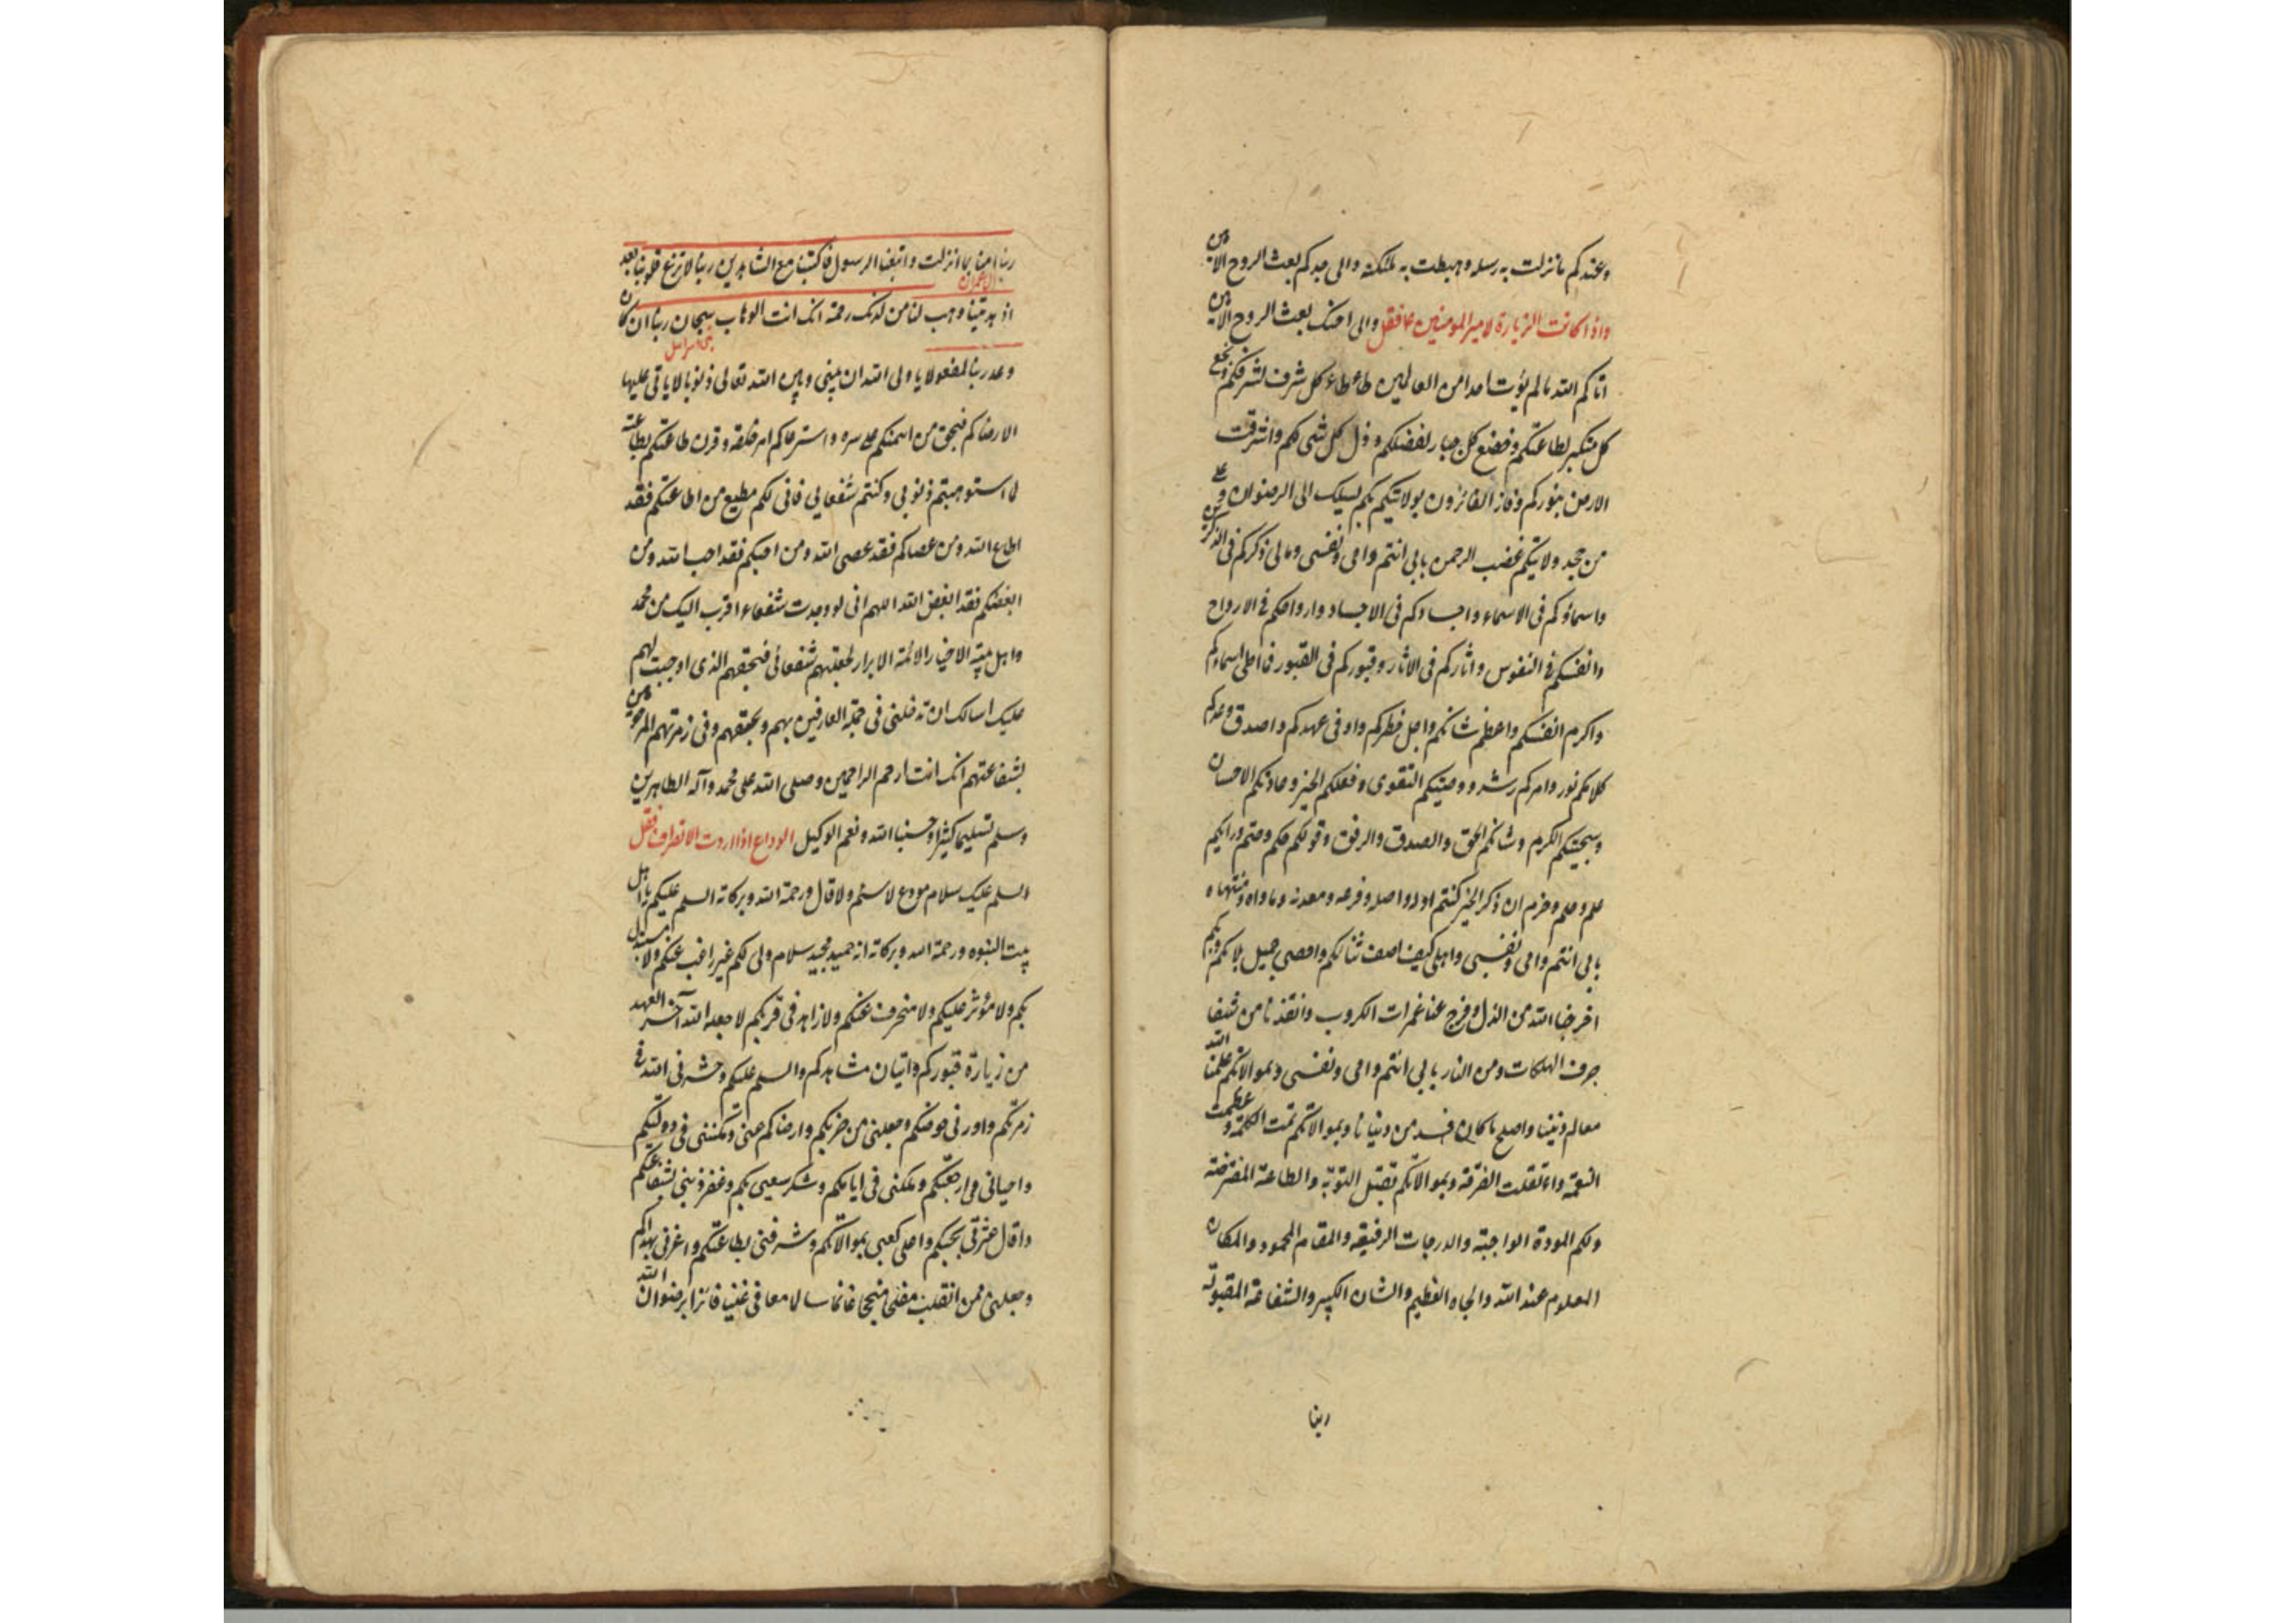 وعندكم ما نزلت به رسله وهبطت به ملئكته والى جدكم بعث الروح الامين
واذا كانت الزيارة لامير المومنين ع فقل والى اخيك بعث الروح الامين
اتاكم الله ما لم يؤت احدا من العالمين طاطاء كل شرف لشرفكم وبخع
كل متكبر لطاعتكم وخضع كل جبار لفضلكم وذل كل شى لكم واشرقت
الارض بنوركم وفاز الفائزون بولايتكم بكم يسلك الى الرضوان وعلى
من جحد ولايتكم غضب الرحمن بابى انتم وامى ونفسى ومالى ذكركم فى الذاكرين
واسماؤكم فى الاسماء واجسادكم فى الاجساد وارواحكم فى الارواح
وانفسكم فى النفوس واثاركم فى الاثار وقبوركم فى القبور فما احلى اسماءكم
واكرم انفسكم واعظم شانكم واجل خطركم واوفى عهدكم واصدق وعدكم
كلامكم نور وامركم رشد ووصيتكم التقوى وفعلكم الخير وعادتكم الاحسان
وسجيتكم الكرم وشانكم الحق والصدق والرفق وقولكم حكم وحتم ورايكم
علم وحلم وحزم ان ذكر الخير كنتم اوله واصله وفرعه ومعدنه وماواه ومنتهاه
بابى انتم وامى ونفسى واهلى كيف اصف ثنائكم واحصى جميل بلائكم وبكم
اخرجنا الله من الذل وفرج عنا غمرات الكروب وانقذنا من شفا
جرف الهلكات ومن النار بابى انتم وامى ونفسى وبموالاتكم علمنا الله
معالم ديننا واصلح ما كان فسد من دنيانا وبموالاتكم تمت الكلمة وعظمت
النعمة وائتلفت الفرقة وبموالاتكم تقبل التوبة والطاعة المفترضة
ولكم المودة الواجبة والدرجات الرفيعه والمقام المحمود والمكان
المعلوم عند الله والجاه العظيم والشان الكبير والشفاعة المقبولة
ربنا
ربنا امنا بما انزلت واتبعنا الرسول فاكتبنا مع الشاهدين ربنا لا تزغ قلوبنا بعد
ال عمران
اذ هديتنا وهب لنا من لدنك رحمة انك انت الوهاب سبحان ربنا ان كان
بنى اسرائيل
وعد ربنا لمفعولا يا ولى الله ان بينى وبين الله تعالى ذنوبا لا ياتى عليها
الا رضاكم فبحق من ائتمنكم على سره واسترعاكم امر خلقه وقرن طاعتكم بطاعته
لما استوهبتم ذنوبى وكنتم شفعايى فانى لكم مطيع من اطاعكم فقد
اطاع الله ومن عصاكم فقد عصى الله ومن احبكم فقد احب الله ومن
ابغضكم فقد ابغض الله اللهم انى لو وجدت شفعاء اقرب اليك من محمد
واهل بيته الاخيار الائمة الابرار لجعلتهم شفعائى فبحقهم الذى اوجبت لهم
عليك اسالك ان تدخلنى فى جملة العارفين بهم وبحقهم وفى زمرتهم المرحومين
بشفاعتهم انك انت ارحم الراحمين وصلى الله على محمد وآله الطاهرين
وسلم تسليما كثيرا وحسبنا الله ونعم الوكيل الوداع اذا اردت الانصراف فقل
السلم عليك سلام مودع لا سئم ولا قال ورحمة الله وبركاته السلم عليكم يا اهل
بيت النبوه ورحمة الله وبركاته انه حميد مجيد سلام ولى لكم غير راغب عنكم ولا مستبدل
بكم ولا مؤثر عليكم ولا منحرف عنكم ولا زاهد فى قربكم لا جعله الله آخر العهد
من زيارة قبوركم واتيان مشاهدكم والسلم عليكم وحشرنى الله فى
زمرتكم واوردنى حوضكم وجعلنى من حزبكم وارضاكم عنى ومكننى فى دولتكم
واحيانى فى رجعتكم وملكنى فى ايامكم وشكر سعيى بكم وغفر ذنبى بشفاعتكم
واقال عثرتى بحبكم واعلى كعبى بموالاتكم وشرفنى بطاعتكم واعزنى بهداكم
وجعلنى ممن انقلب مفلحا منجحا غانما سالما معافى غنيا فائزا برضوان الله